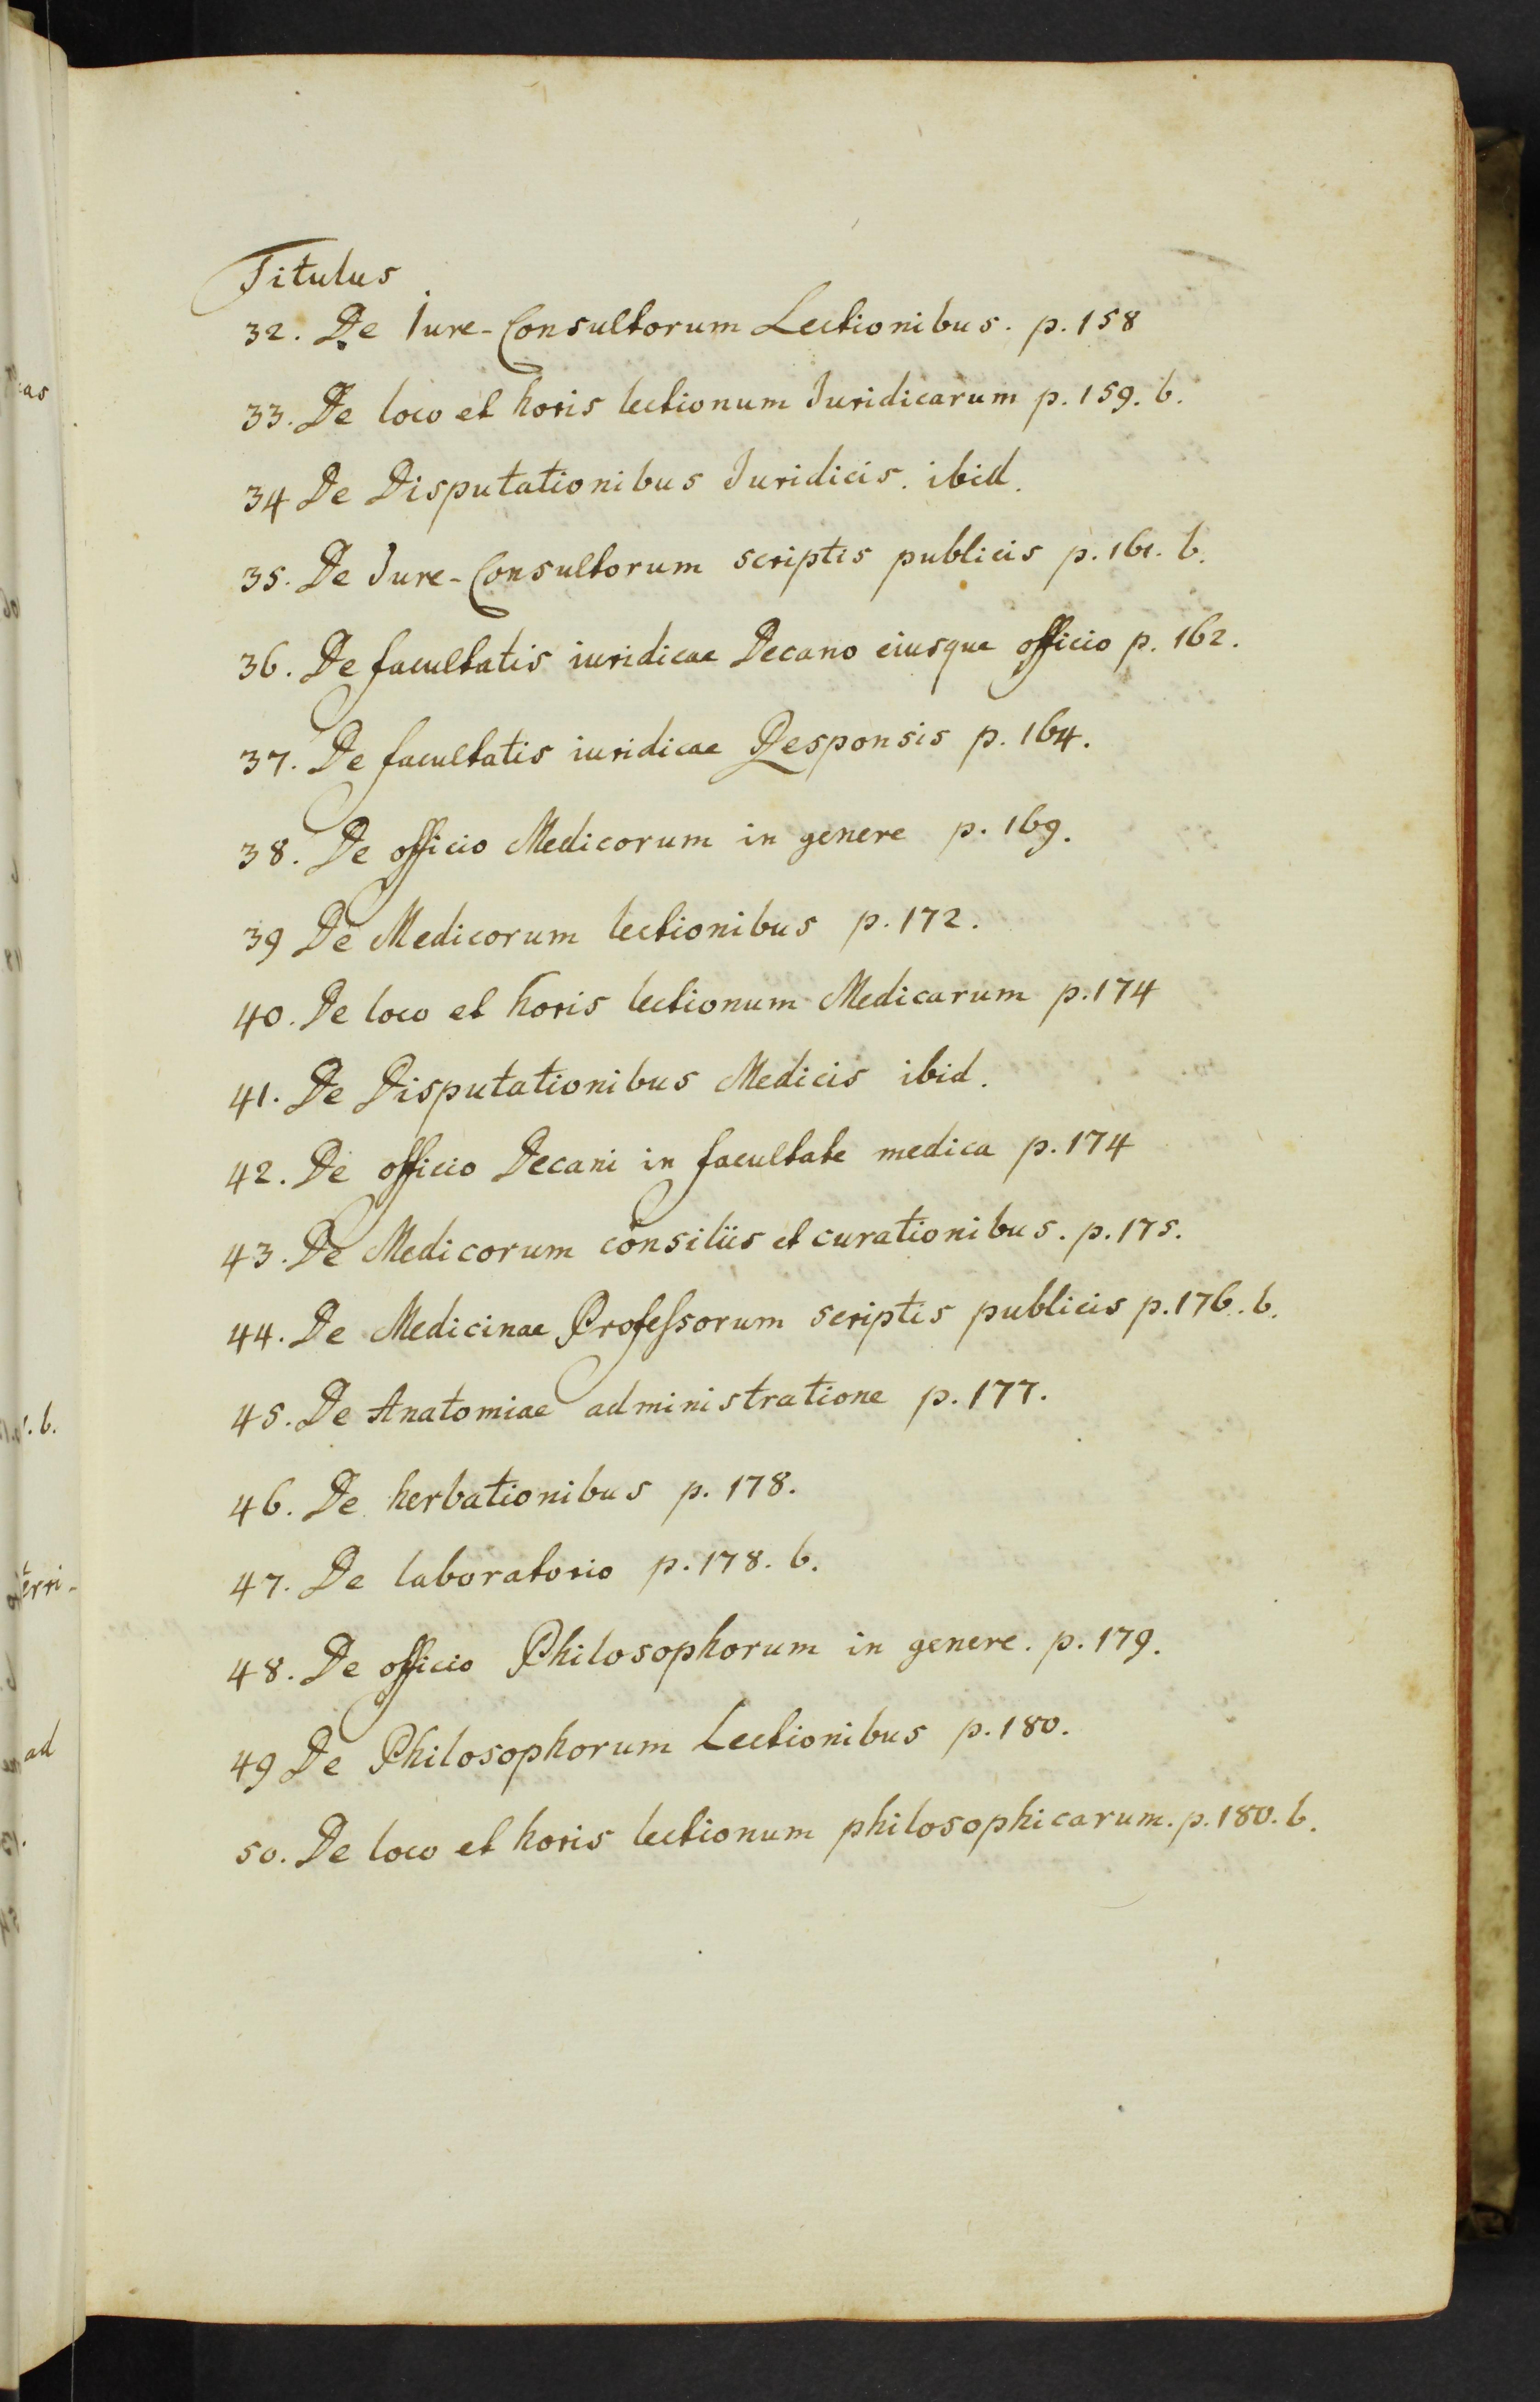 Titulus
32. De Iure-Consultorum Lectionibus. p. 158
33. De loco et horis lectionum Iuridicarum p. 159. b.
34 De Disputationibus Iuridicis. ibid.
35. De Jure-Consultorum scriptis publicis p. 161. b.
36. De facultatis iuridicae Decano eiusque officio p. 162.
37. De facultatis iuridicae Responsis p. 164.
38. De officio Medicorum in genere p. 169.
39 De Medicorum lectionibus p. 172.
40. De loco et horis lectionum Medicarum p. 174
41. De Disputationibus Medicis ibid.
42. De officio Decani in facultate medica p. 174
43. De Medicorum consiliis et curationibus. p. 175.
44. De Medicinae Profeſsorum scriptis publicis p. 176. b.
45. De Anatomiae administratione p. 177.
46. De herbationibus p. 178.
47. De laboratorio p. 178. b.
48. De officio Philosophorum in genere. p. 179.
49 De Philosophorum Lectionibus p. 180.
50. De loco et horis lectionum philosophicarum. p. 180. b.